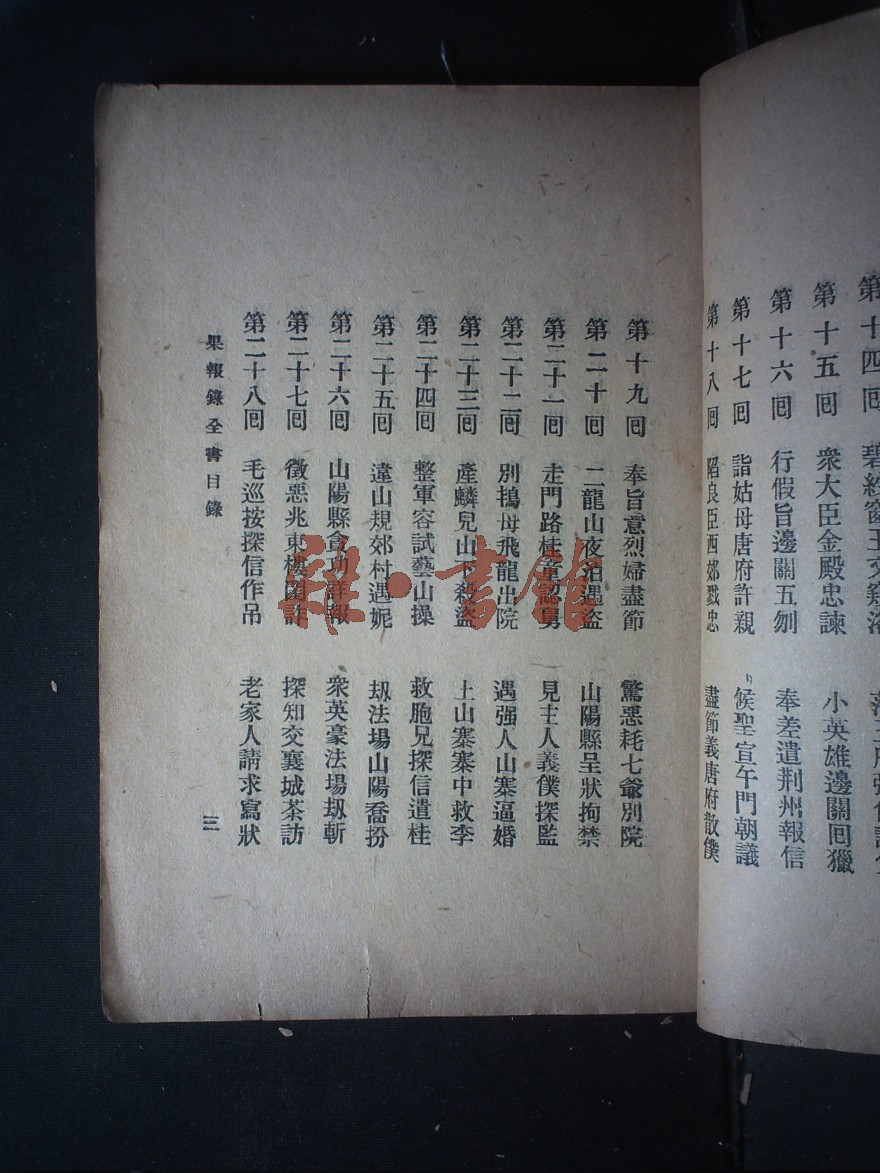 第十四回
第十五回 衆大臣金殿忠諫 小英雄邊關回獵
第十六回 行假旨邊關五刎 奉差遣荆州報信
第十七回 詣姑母唐府許親 候聖宣午門朝議
第十八回 陷良臣西郊戮忠 盡節義唐府散僕
第十九回 奉旨意烈婦盡節 驚惡耗七爺別院
第二十回 二龍山夜泊遇盜 山陽縣呈狀拘禁
第二十一回 走門路桂童認舅 見主人義僕探監
第二十二回 別搗母飛龍出院 遇强人山寨逼婚
第二十三回 產麟兒山下殺盜 土山寨寨中救李
第二十四回 整軍容試藝山操 救胞兄探信遣桂
第二十五回 違山規郊村遇妮 刼法場山陽喬扮
第二十六回 山陽縣貪功詳報 衆英豪法場刼斬
第二十七回 徵惡兆東樓 探知交襄城茶訪
第二十八回 毛巡按探信作吊 老家人請求寫狀
果報錄全書目錄 三
雜·書館